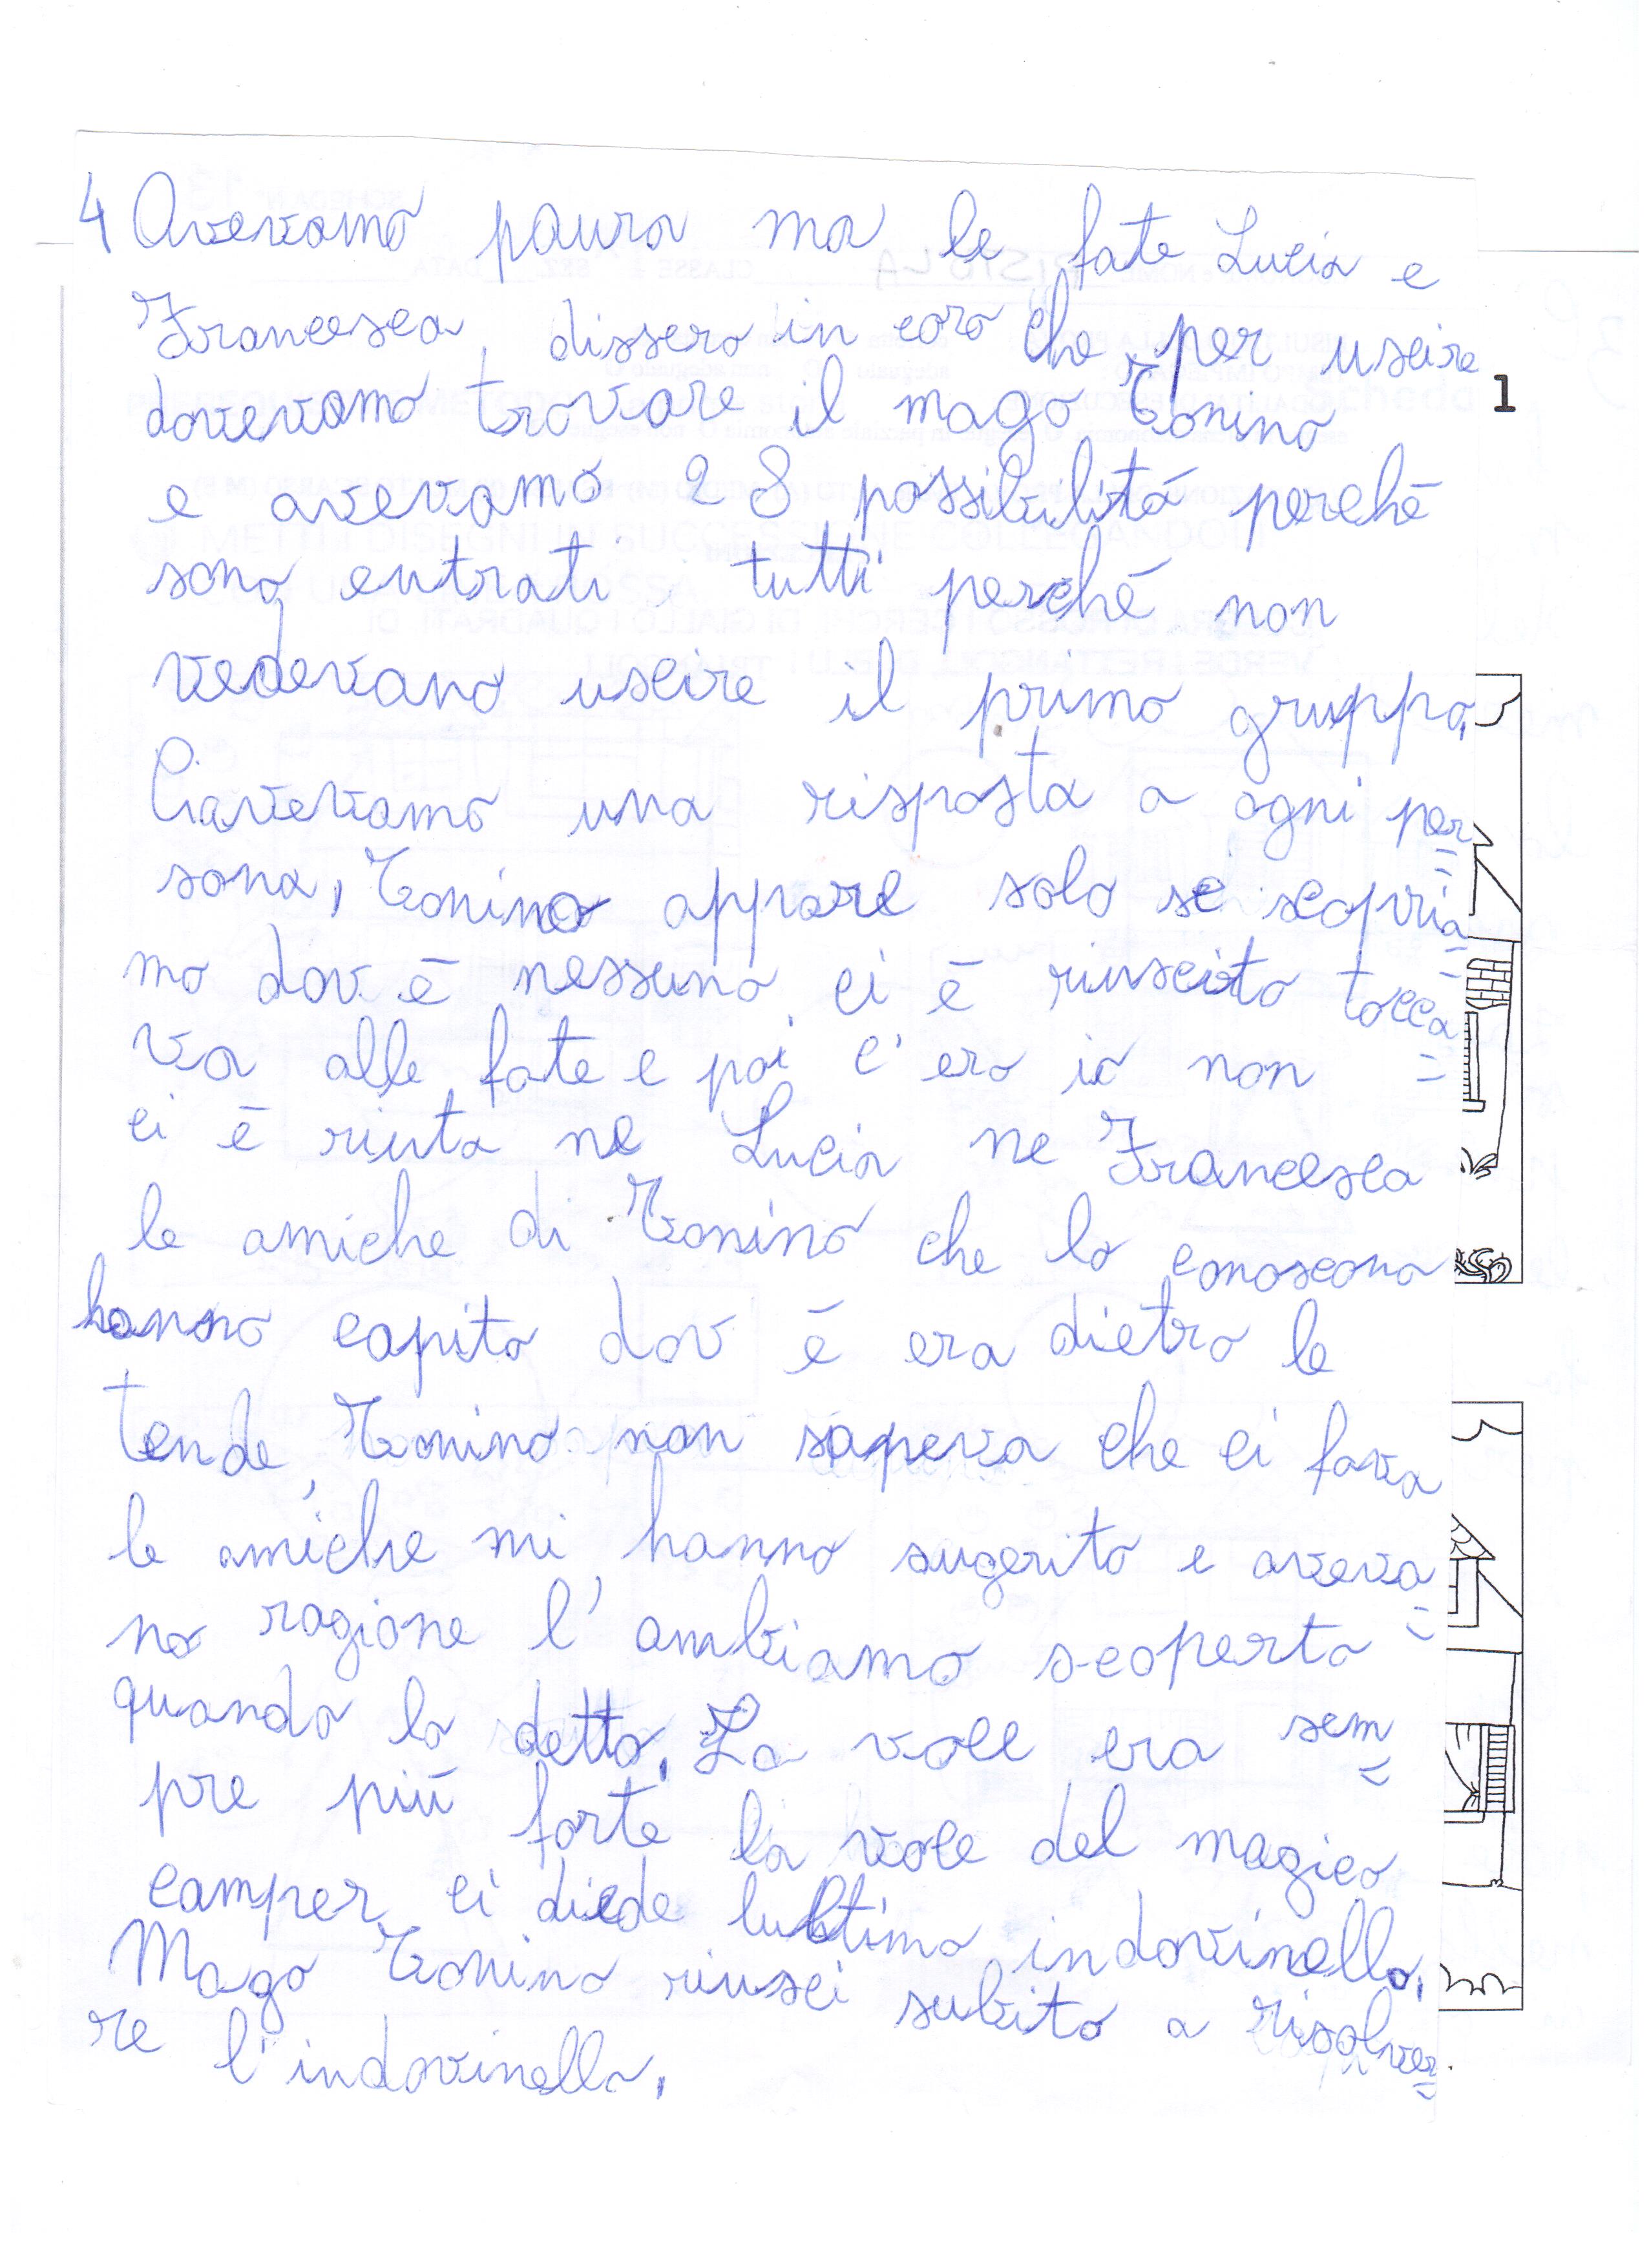 4 Avevamo paura ma le fate Lucia e
Francesca dissero in coro che per uscire
1
dovevamo trovare il mago Tonino
e avevamo 28 possibilità perchè
sono entrati tutti perchè non
vedevano uscire il primo gruppo.
Ciavevamo una risposta a ogni per=
sona, Tonino appare solo se scopria=
mo dov è nessuno ci è riuscito tocca=
va alle fate e poi c'ero io non
ci è riuta ne Lucia ne Francesca
le amiche di Tonino che lo conoscono
hanno capito dov è era dietro le
tende, Tonino non sapeva che ci fava
le amiche mi hanno sugerito e aveva=
no ragione l'ambiamo scoperto
quando lo detto. La voce era sem=
pre più forte la voce del magico
camper ci diede lultimo indovinello.
Mago Tonino riusci subito a risolver=
re l'indovinello.